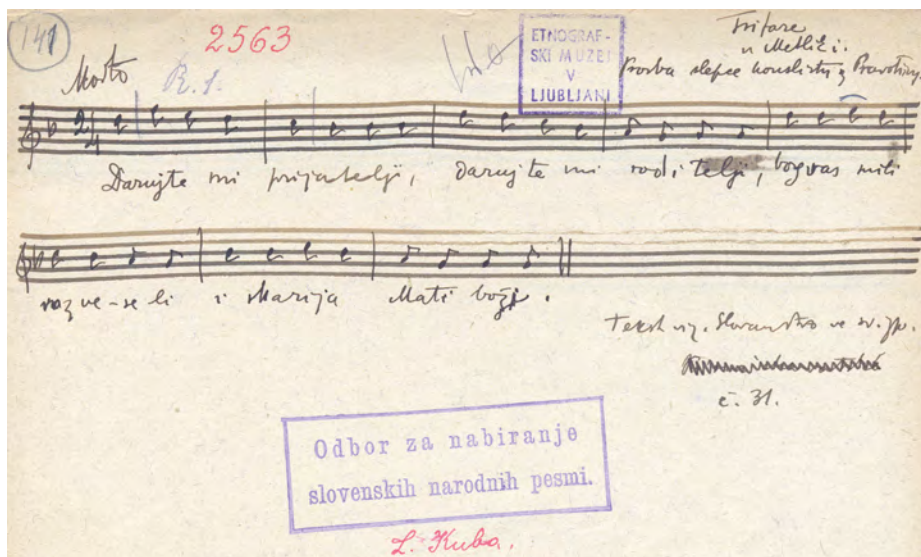 141
2563
ETNOGRAF-
SKI MUZEJ
V
LJUBLJANI
Trifare
u Metliči.
Prosba slepce houslisty z
2/4
Darujte mi prijatelji, darujte mi roditelji, bog vas mili
razve-se li i Marija Mati božja.
Tekst viz. Slovanstvo ve sv. zp.
č. 31.
Odbor za nabiranje
slovenskih narodnih pesmi.
L. Kuba.